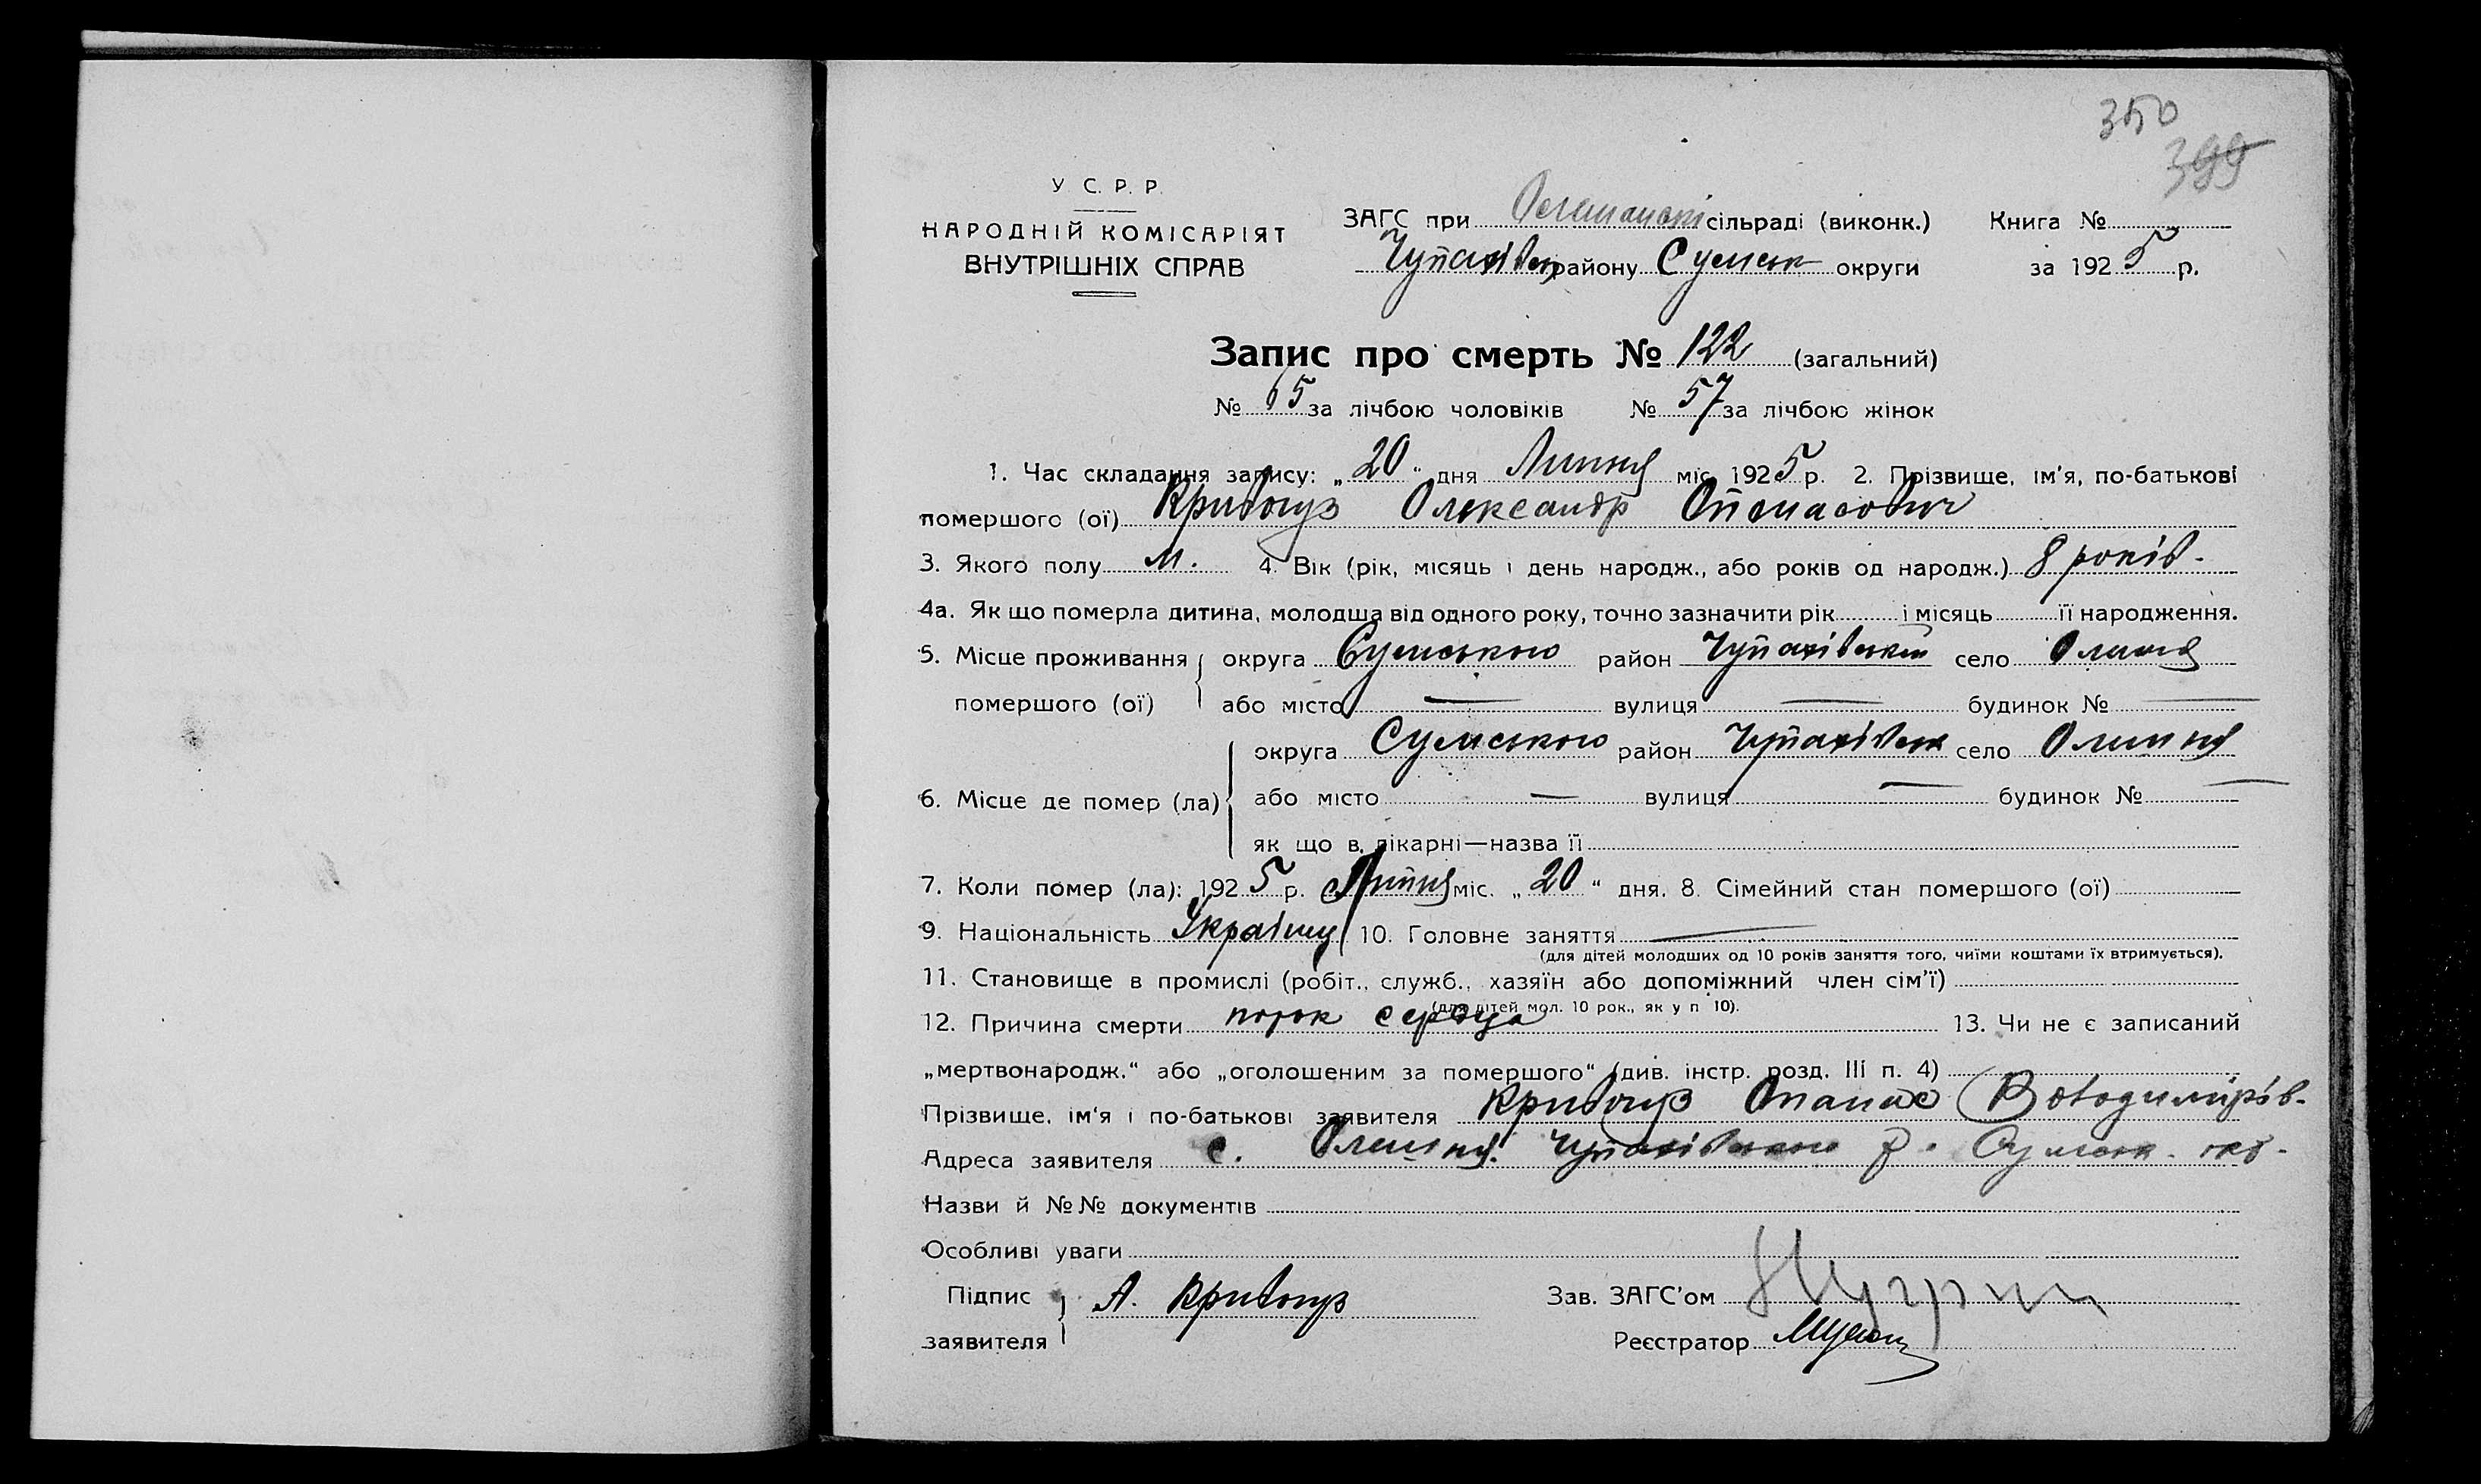 350
399
У С. Р. Р.
НАРОДНІЙ КОМІСАРІЯТ
ВНУТРІШНІХ СПРАВ
ЗАГС при сільраді (виконк.) Книга №
Чупахівськ району Сумськ округи за 1925 р.
Запис про смерть № 122 (загальний)
№ 65 за лічбою чоловіків № 57 за лічбою жінок
1. Час складання запису: „20“ дня Липня міс. 1925 р. 2. Прізвище, ім'я, по-батькові
помершого (ої) Кривогуз Олександр Опанасович
3. Якого полу м. 4. Вік (рік, місяць і день народж., або років од народж.) 8 років.
4а. Як що померла дитина, молодша від одного року, точно зазначити рік і місяць її народження.
5. Місце проживання округа Сумського район Чупахівський село Олешня
помершого (ої) або місто — вулиця — будинок № —
округа Сумського район Чупахівськ село Олешня
6. Місце де помер (ла) або місто — вулиця — будинок № —
як що в лікарні—назва її
7. Коли помер (ла): 1925 р. Липня міс. „20“ дня. 8. Сімейний стан помершого (ої)
9. Національність Україн 10. Головне заняття —
(для дітей молодших од 10 років заняття того, чиїми коштами їх втримується).
11. Становище в промислі (робіт., служб., хазяїн або допоміжний член сім'ї)
(для дітей мол. 10 рок., як у п 10).
12. Причина смерти порок сердца 13. Чи не є записаний
„мертвонародж.“ або „оголошеним за помершого“ (див. інстр. розд. III п. 4)
Прізвище, ім'я і по-батькові заявителя Кривогуз Опанас Володимірів.
Адреса заявителя с. Олешня. Чупахівського р. Сумськ. окр.
Назви й №№ документів
Особливі уваги
Підпис заявителя А. Кривогуз
Зав. ЗАГС'ом
Реєстратор